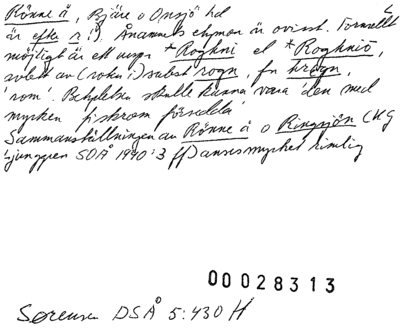 Rönne å, Bjäre o Onsjö hd
är efter r!). Ånamnets etymon är ovisst. Formellt
möjligt är ett urspr *Roghni el *Roghniö,
avlett av (roku!) subst rogn, fn hrogn,
'rom'. Betydelsen skulle kunna vara 'den med
mycken fiskrom försedda'
Sammanställningen av Rönne å o Ringsjön (KG
Ljunggren SOÅ 1940:3 ff) anses mycket rimlig
00028313
Sørensen DSÅ 5:430 H